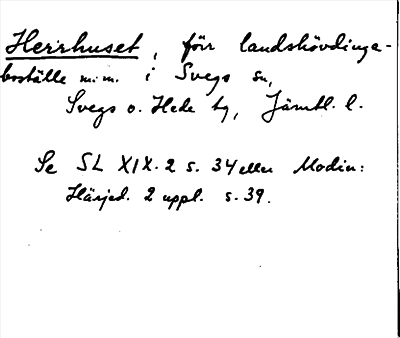 Herrhuset, förr landshövdinge-
boställe m.m. i Svegs sn,
Svegs o. Hede tg, Jämtl. l.
Se SL XIX. 2 s. 34 eller Modin:
Härjed. 2 uppl. s. 39.